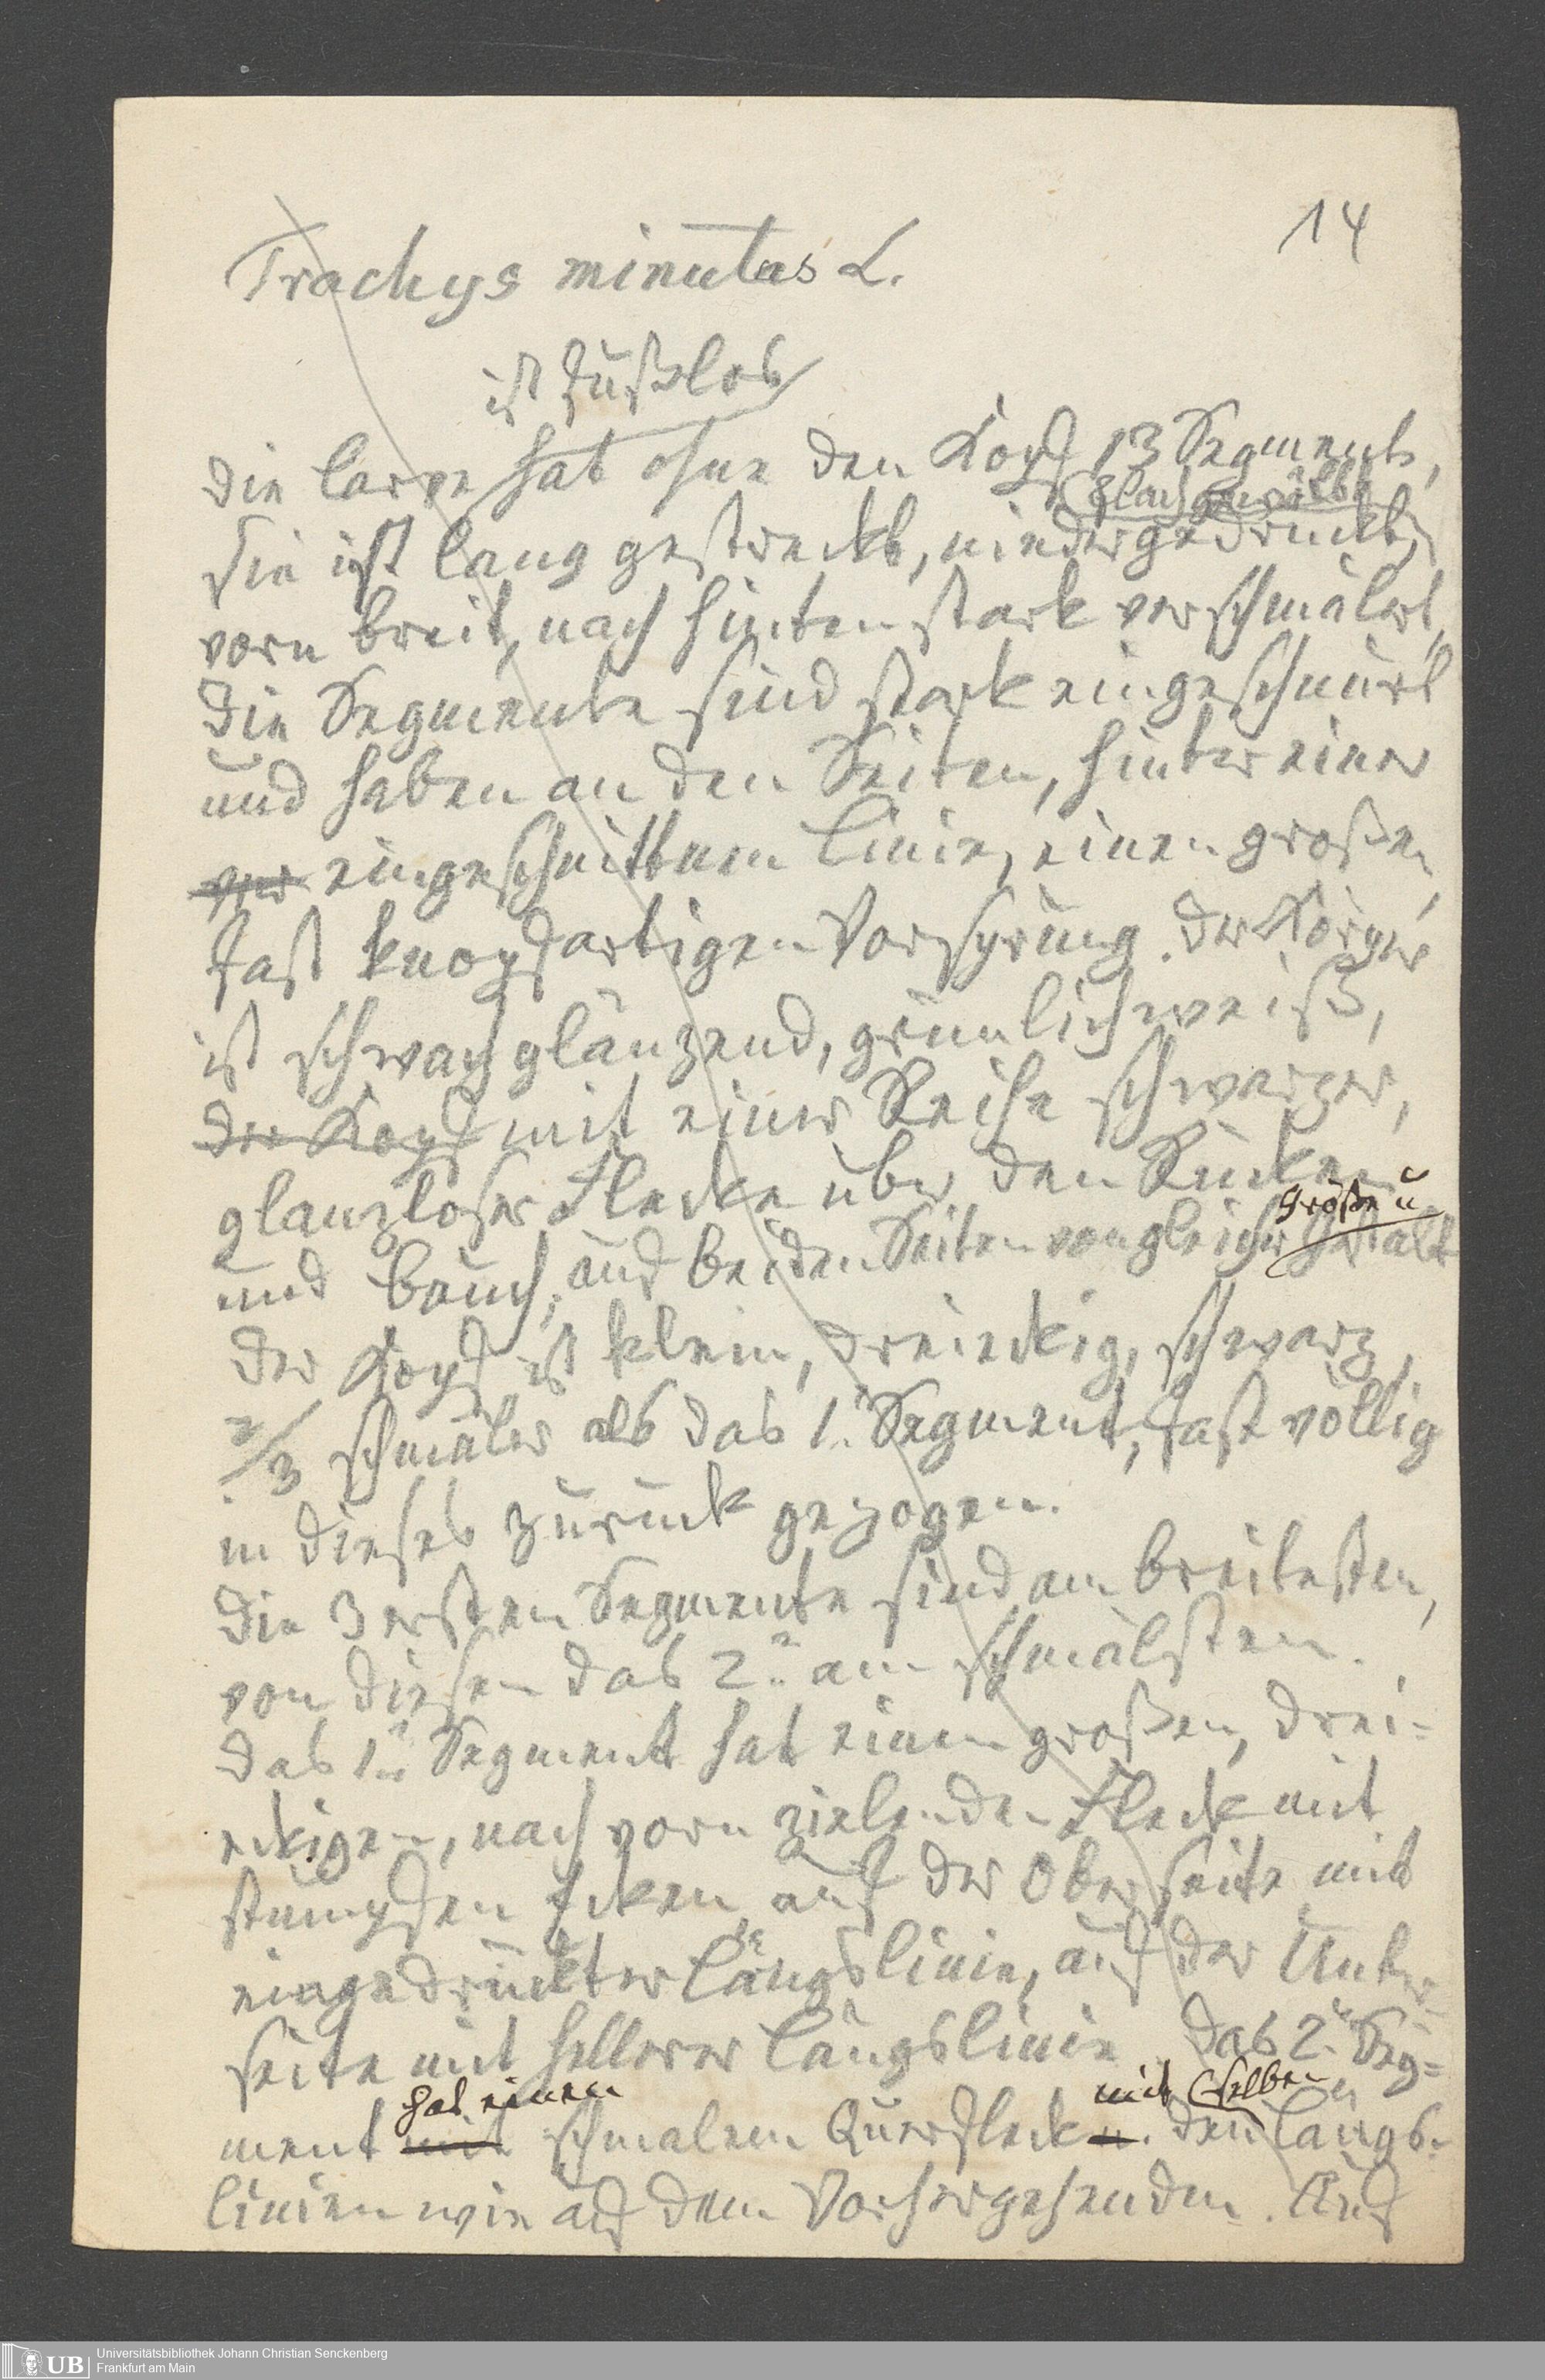 14
Trachys minutus L.
ist fußlos
Die Larve hat ohne den Kopf 13 Segmente,
flach gewölbt
Sie ist lang gestreckt, niedergedrückt,
vorn breit, nach hinten stark verschmälert,
Die Segmente sind stark eingeschnürt
und haben an den Seiten, hinter einer
vor eingeschnittenen Linie, einen großen,
fast knopfartigen Vorsprung. Der Körper
ist schwach glänzend, grünlichweiß,
der Kopf mit einer Reihe schwarzer,
glanzloser Flecke über den Rücken
Größe u
und Bauch, auf beiden Seiten von gleicher Gestalt
Der Kopf ist klein, dreieckig, schwarz,
2/3 schmäler als das 1. Segment, fast völlig
in dieses zurück gezogen.
Die 3 ersten Segmente sind am breitesten,
von diesen das 2. am schmälsten.
Das 1. Segment hat einen großen, drei-
eckigen, nach vorn zielenden Fleck mit
stumpfen Ecken auf der Oberseite mit
eingedrückter Längslinie, auf der Unter-
seite mit hellerer Längslinie. Das 2. Seg-
hat einen mit selben
ment mit schmalem Querfleck u. den Längs-
linien wie auf dem Vorhergehenden. Auf
Universitätsbibliothek Johann Christian Senckenberg
UB Frankfurt am Main